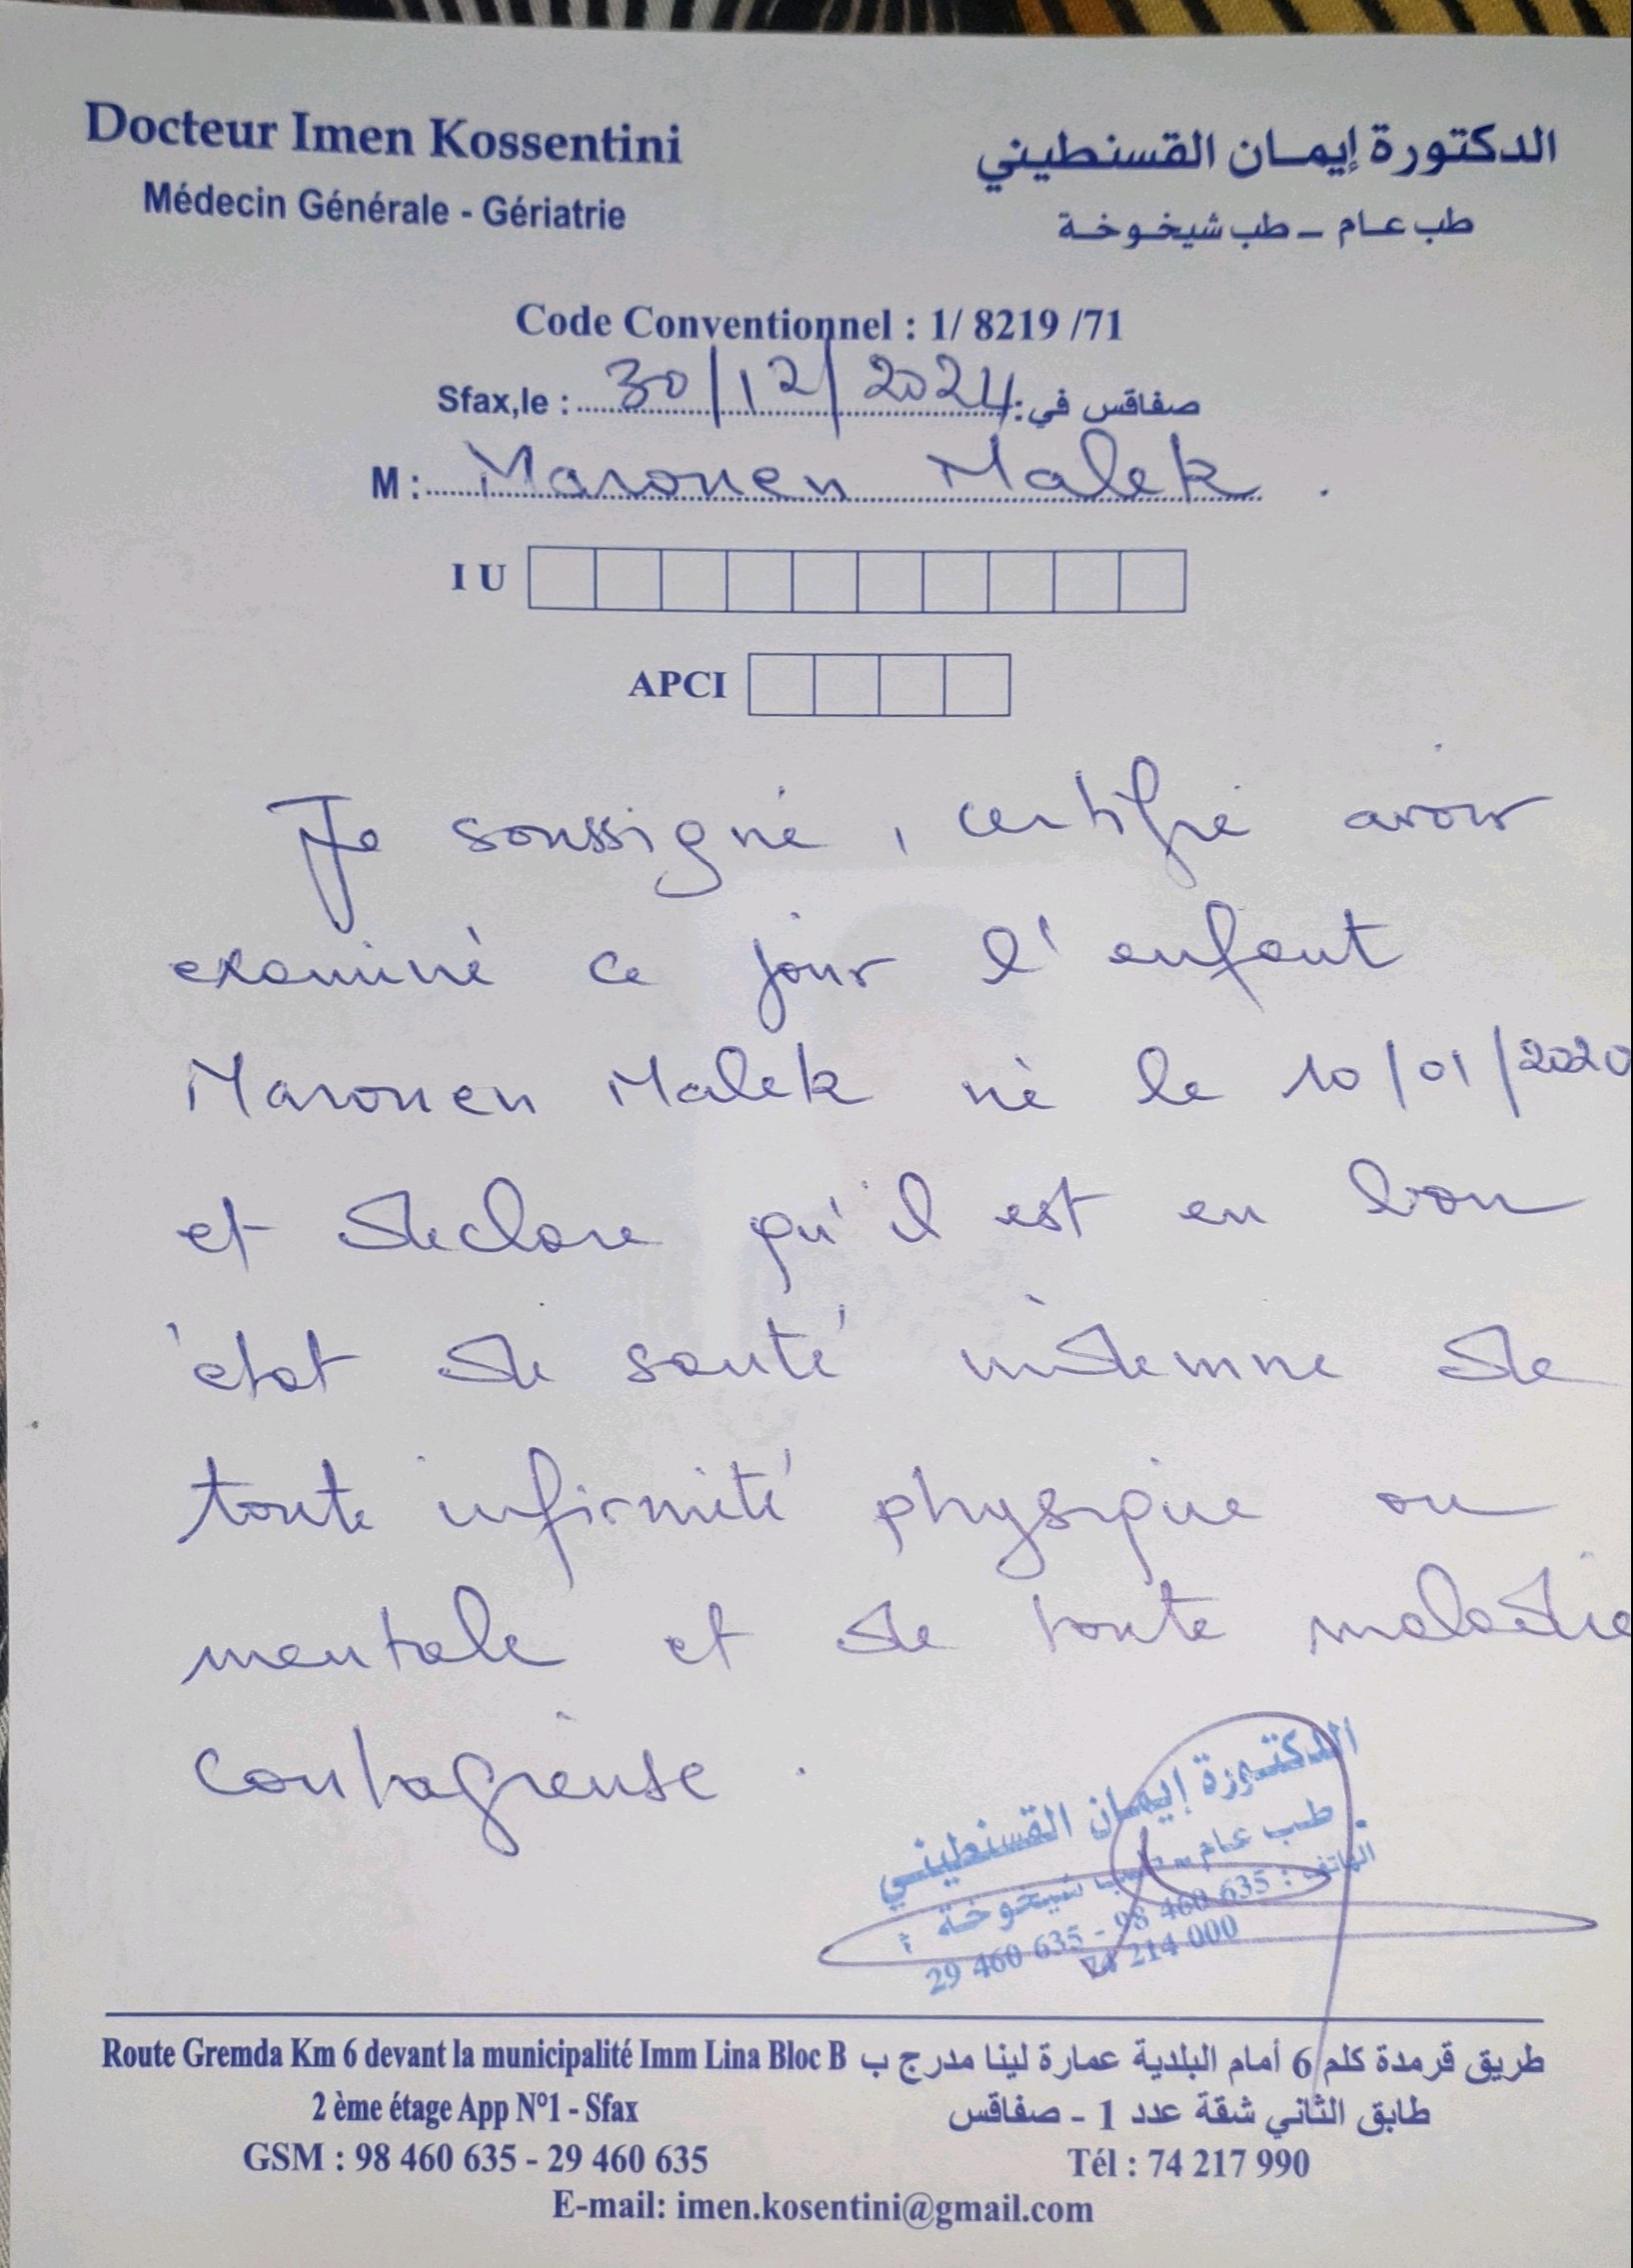 Docteur Imen Kossentini
Médecin Générale - Gériatrie
الدكتورة إيمان القسنطيني
طب عام - طب شيخوخة
Code Conventionnel : 1/ 8219 /71
Sfax,le : 30/12/2024 صفاقس في:
M : Marouen Malek .
I U
APCI
Je soussigné, certifie avoir
examiné ce jour l'enfant
Marouen Malek né le 10/01/2020
et déclare qu'il est en bon
état de santé indemne de
toute infirmité physique ou
mentale et de toute maladie
contagieuse .
الدكتورة إيمان القسنطيني
طب عام - طب شيخوخة
الهاتف : 98 460 635 - 29 460 635
74 214 000
Route Gremda Km 6 devant la municipalité Imm Lina Bloc B
طريق قرمدة كلم 6 أمام البلدية عمارة لينا مدرج ب
2 ème étage App N°1 - Sfax
طابق الثاني شقة عدد 1 - صفاقس
GSM : 98 460 635 - 29 460 635
Tél : 74 217 990
E-mail: imen.kosentini@gmail.com